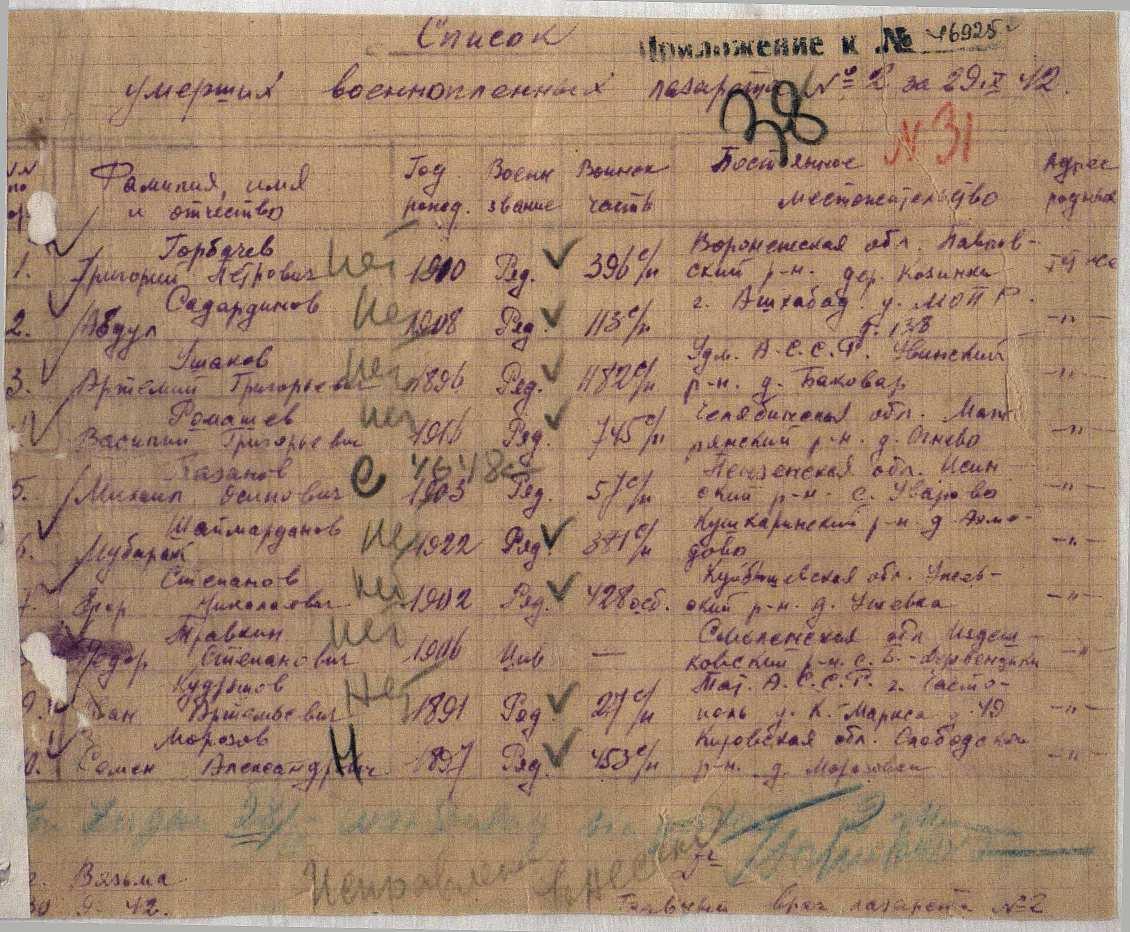 Список
Приложение к № 46925с
умерших военнопленных лазарета № 2 за 29.IX 42.
38
N 31
Фамилия, имя
и отчество
Год
рожд.
Военн
звание
Воинск
часть
Постоянное
местожительство
Адрес
родных
1. Горбачев
Григорий Петрович нет 1910 Ряд. 396 с/п Воронежская обл. Павлов-
ский р-н. дер. Козинки
2. Садардинов
Абдул нет 1908 Ряд. 113 с/п г. Ашхабад у. МОПР.
д. 138 -"-
3. Ушаков
Артемий Григорьевич нет 1896 Ряд. 1182 с/п Удм. А.С.С.Р. Увинский
р-н. д. Баковар -"-
Ромашев
Василий Григорьевич нет 1916 Ряд. 745 с/п Челябинская обл.
р-н. д. Огнево -"-
5. Казанов
Михаил Осипович с 4648 1903 Ряд. 57 с/п Пензенская обл. Исин-
ский р-н. с. Уварово -"-
6. Шаймарданов
Мубарак нет 1922 Ряд. 381 с/п Кушкаринский р-н д. Ахме-
дово -"-
7. Степанов
Егор Николаевич нет 1902 Ряд. 428 осб. Куйбышевская обл. Утев-
ский р-н. д. Утевка -"-
Травкин
Федор Степанович нет 1906 Цив — Смоленская обл Издеш-
ковский р-н. с. Б. -"-
9. Кудряшов
Иван Артемьевич нет 1891 Ряд. 27 с/п Тат. А.С.С.Р. г. Чисто-
поль у. К. Маркса д. 49 -"-
10. Морозов
Семен Александрович Н 1897 Ряд. 453 с/п Кировская обл. Слободской
р-н. д. -"-
г. Вязьма
30 9. 42.
Исправления внесены
Главный врач лазарета №2